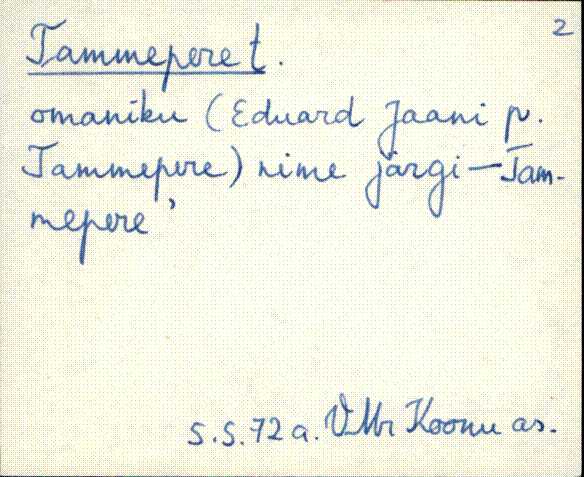 2
Tammepere t.
omaniku (Eduard Jaani p.
Tammepere) nime järgi – Tam-
mepere'
S.S. 72 a. VMr Koonu as.